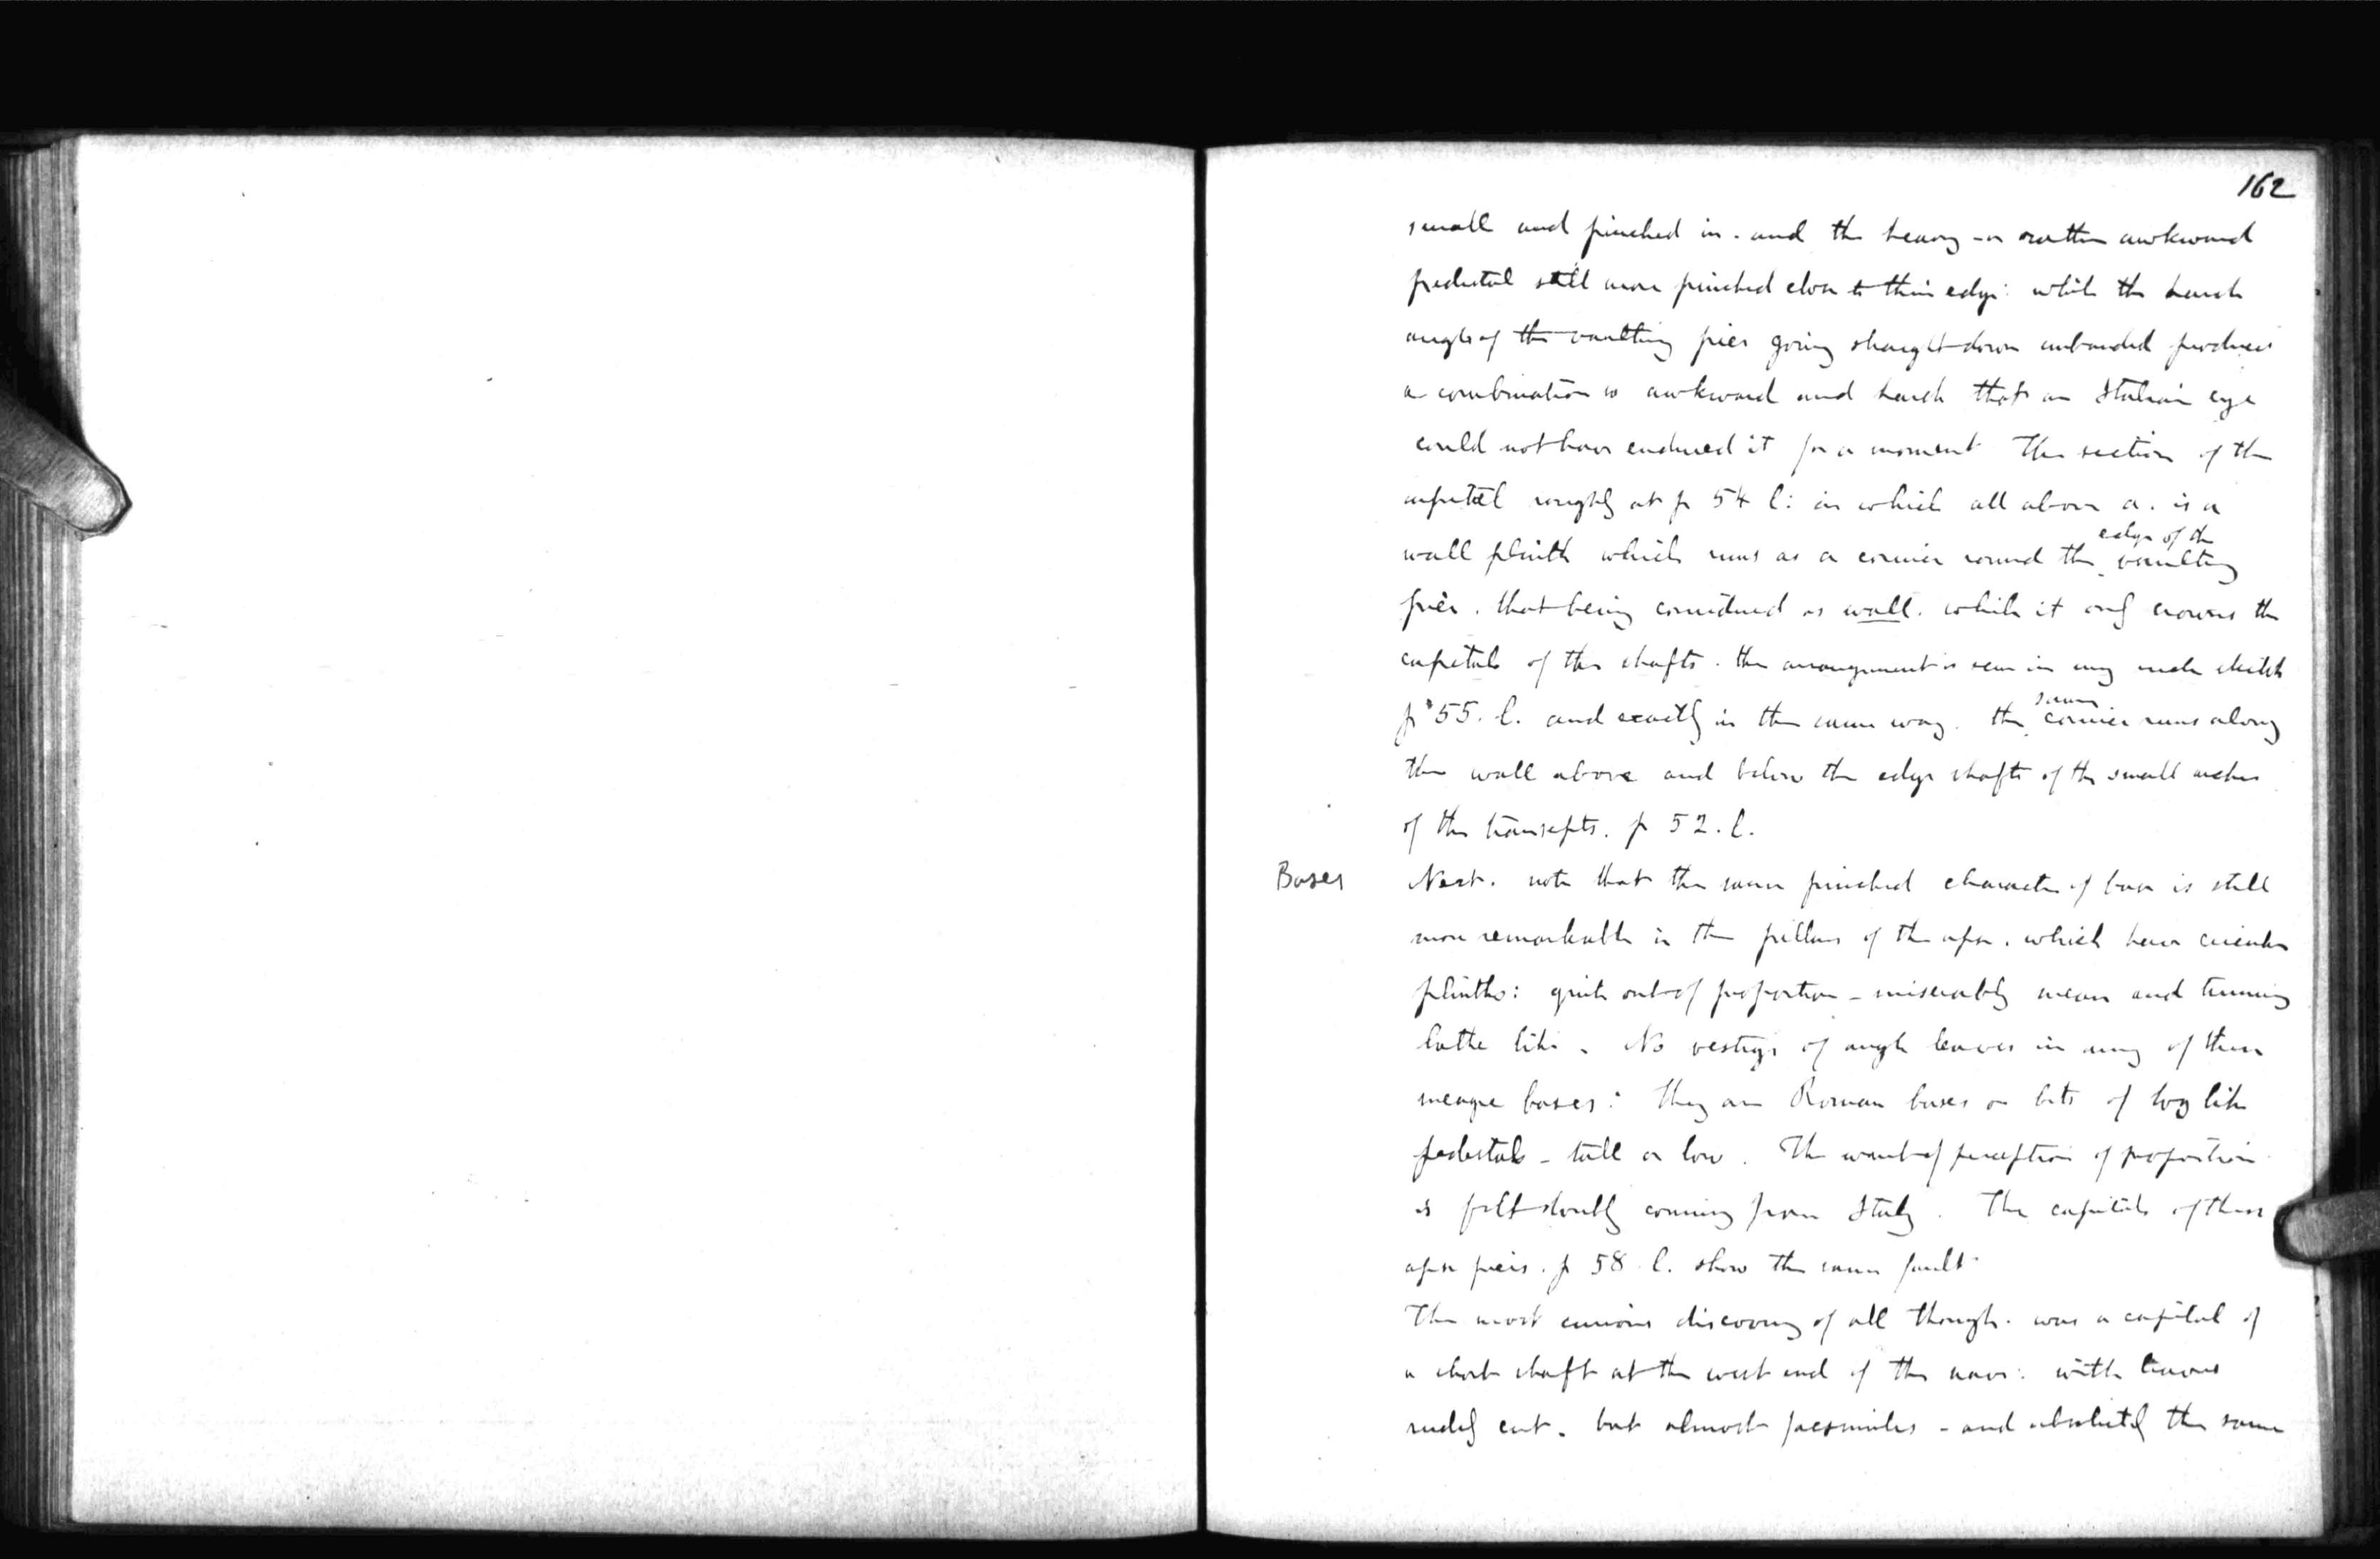 162
small and pinched in. and the heavy - or rather awkward
pedestal still more pinched close to their edge: while the harsh
angle of the vaulting pier going straight down unbanded produces
a combination so awkward and harsh that an Italian eye
could not have endured it for a moment The section of the
capital roughly at p 54 l: in which all above a. is a
edge of the
wall plinth which runs as a cornice round the vaulting
pier. that being considered as wall. while it only crowns the
capitals of the shafts. the arrangement is seen in my rude sketch
same
p 55. l. and exactly in the same way. the cornice runs along
the wall above and below the edge shafts of the small arches
of the transepts. p 52. l.
Bases
Next. note that the same pinched character of base is still
more remarkable in the pillars of the apse. which have circular
plinths: quite out of proportion - miserably mean and turning
lathe like. No vestige of angle leaves in any of these
meagre bases: they are Roman bases or bits of log like
pedestals - tall or low. The want of perception of proportion
is felt doubly coming from Italy. The capitals of these
apse piers. p 58 l. show the same fault
The most curious discovery of all though. was a capital of
a short shaft at the west end of the nave: with leaves
rudely cut. but almost facsimiles - and absolutely the same